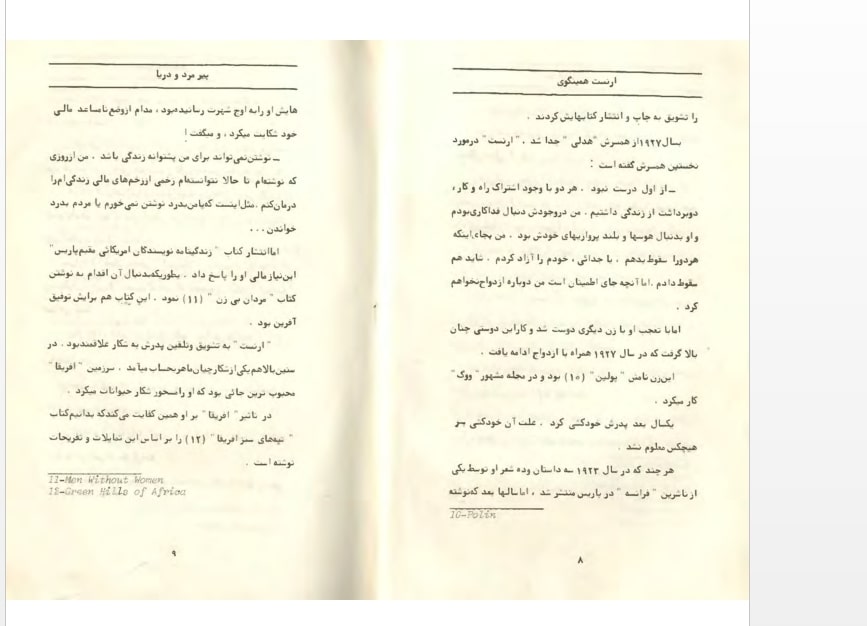 ارنست همینگوی
را تشویق به چاپ و انتشار کتابهایش کردند .
بسال ۱۹۲۷ از همسرش "هدلی" جدا شد . "ارنست" درمورد
نخستین همسرش گفته است :
ــ از اول درست نبود . هر دو با وجود اشتراک راه و کار ،
دوبرداشت از زندگی داشتیم . من دروجودش دنبال فداکاری‌بودم
و او بدنبال هوسها و بلند پروازیهای خودش بود . من بجای‌اینکه
هردورا سقوط بدهم ، با جدائی ، خودم را آزاد کردم . شاید هم
سقوط دادم .اما آنچه جای اطمینان است من دوباره ازدواج‌نخواهم
کرد .
امابا تعجب او با زن دیگری دوست شد و کاراین دوستی چنان
بالا گرفت که در سال ۱۹۲۷ همراه با ازدواج ادامه یافت .
این‌زن نامش "پولین" (۱۰) بود و در مجله مشهور "ووگ"
کار میکرد .
یکسال بعد پدرش خودکشی کرد . علت آن خودکشی بر
هیچکس معلوم نشد .
هر چند که در سال ۱۹۲۳ سه داستان وده شعر او توسط یکی
از ناشرین "فرانسه" در پاریس منتشر شد ، اما سالها بعد که‌نوشته
10-Polin
۸
پیر مرد و دریا
هایش او رابه اوج شهرت رسانیده‌بود ، مدام ازوضع نامساعد مالی
خود شکایت میکرد ، و میگفت :
ــ نوشتن‌نمی‌تواند برای من پشتوانه زندگی باشد . من ازروزی
که نوشته‌ام تا حالا نتوانسته‌ام زخمی اززخمهای مالی زندگی‌ام‌را
درمان‌کنم .مثل‌اینست که‌یامن‌بدرد نوشتن نمی‌خورم یا مردم بدرد
خواندن . . .
اماانتشار کتاب "زندگینامه نویسندگان امریکائی مقیم‌پاریس"
این‌نیازمالی او را پاسخ داد . بطوریکه‌بدنبال آن اقدام به نوشتن
کتاب "مردان بی زن" (۱۱) نمود . این کتاب هم برایش توفیق
آفرین بود .
"ارنست" به تشویق وتلقین پدرش به شکار علاقمندبود . در
سنین‌بالاهم‌یکی‌ازشکارچیان‌ماهربحساب میآمد . سرزمین "افریقا"
محبوب ترین جائی بود که او رامسحور شکار حیوانات میکرد .
در تاثیر "افریقا" بر او همین کفایت می‌کندکه بدانیم‌کتاب
"تپه‌های سبز افریقا" (۱۲) را بر اساس این تمایلات و تفریحات
نوشته است .
11-Men Without Women
12-Green Hills of Africa
۹